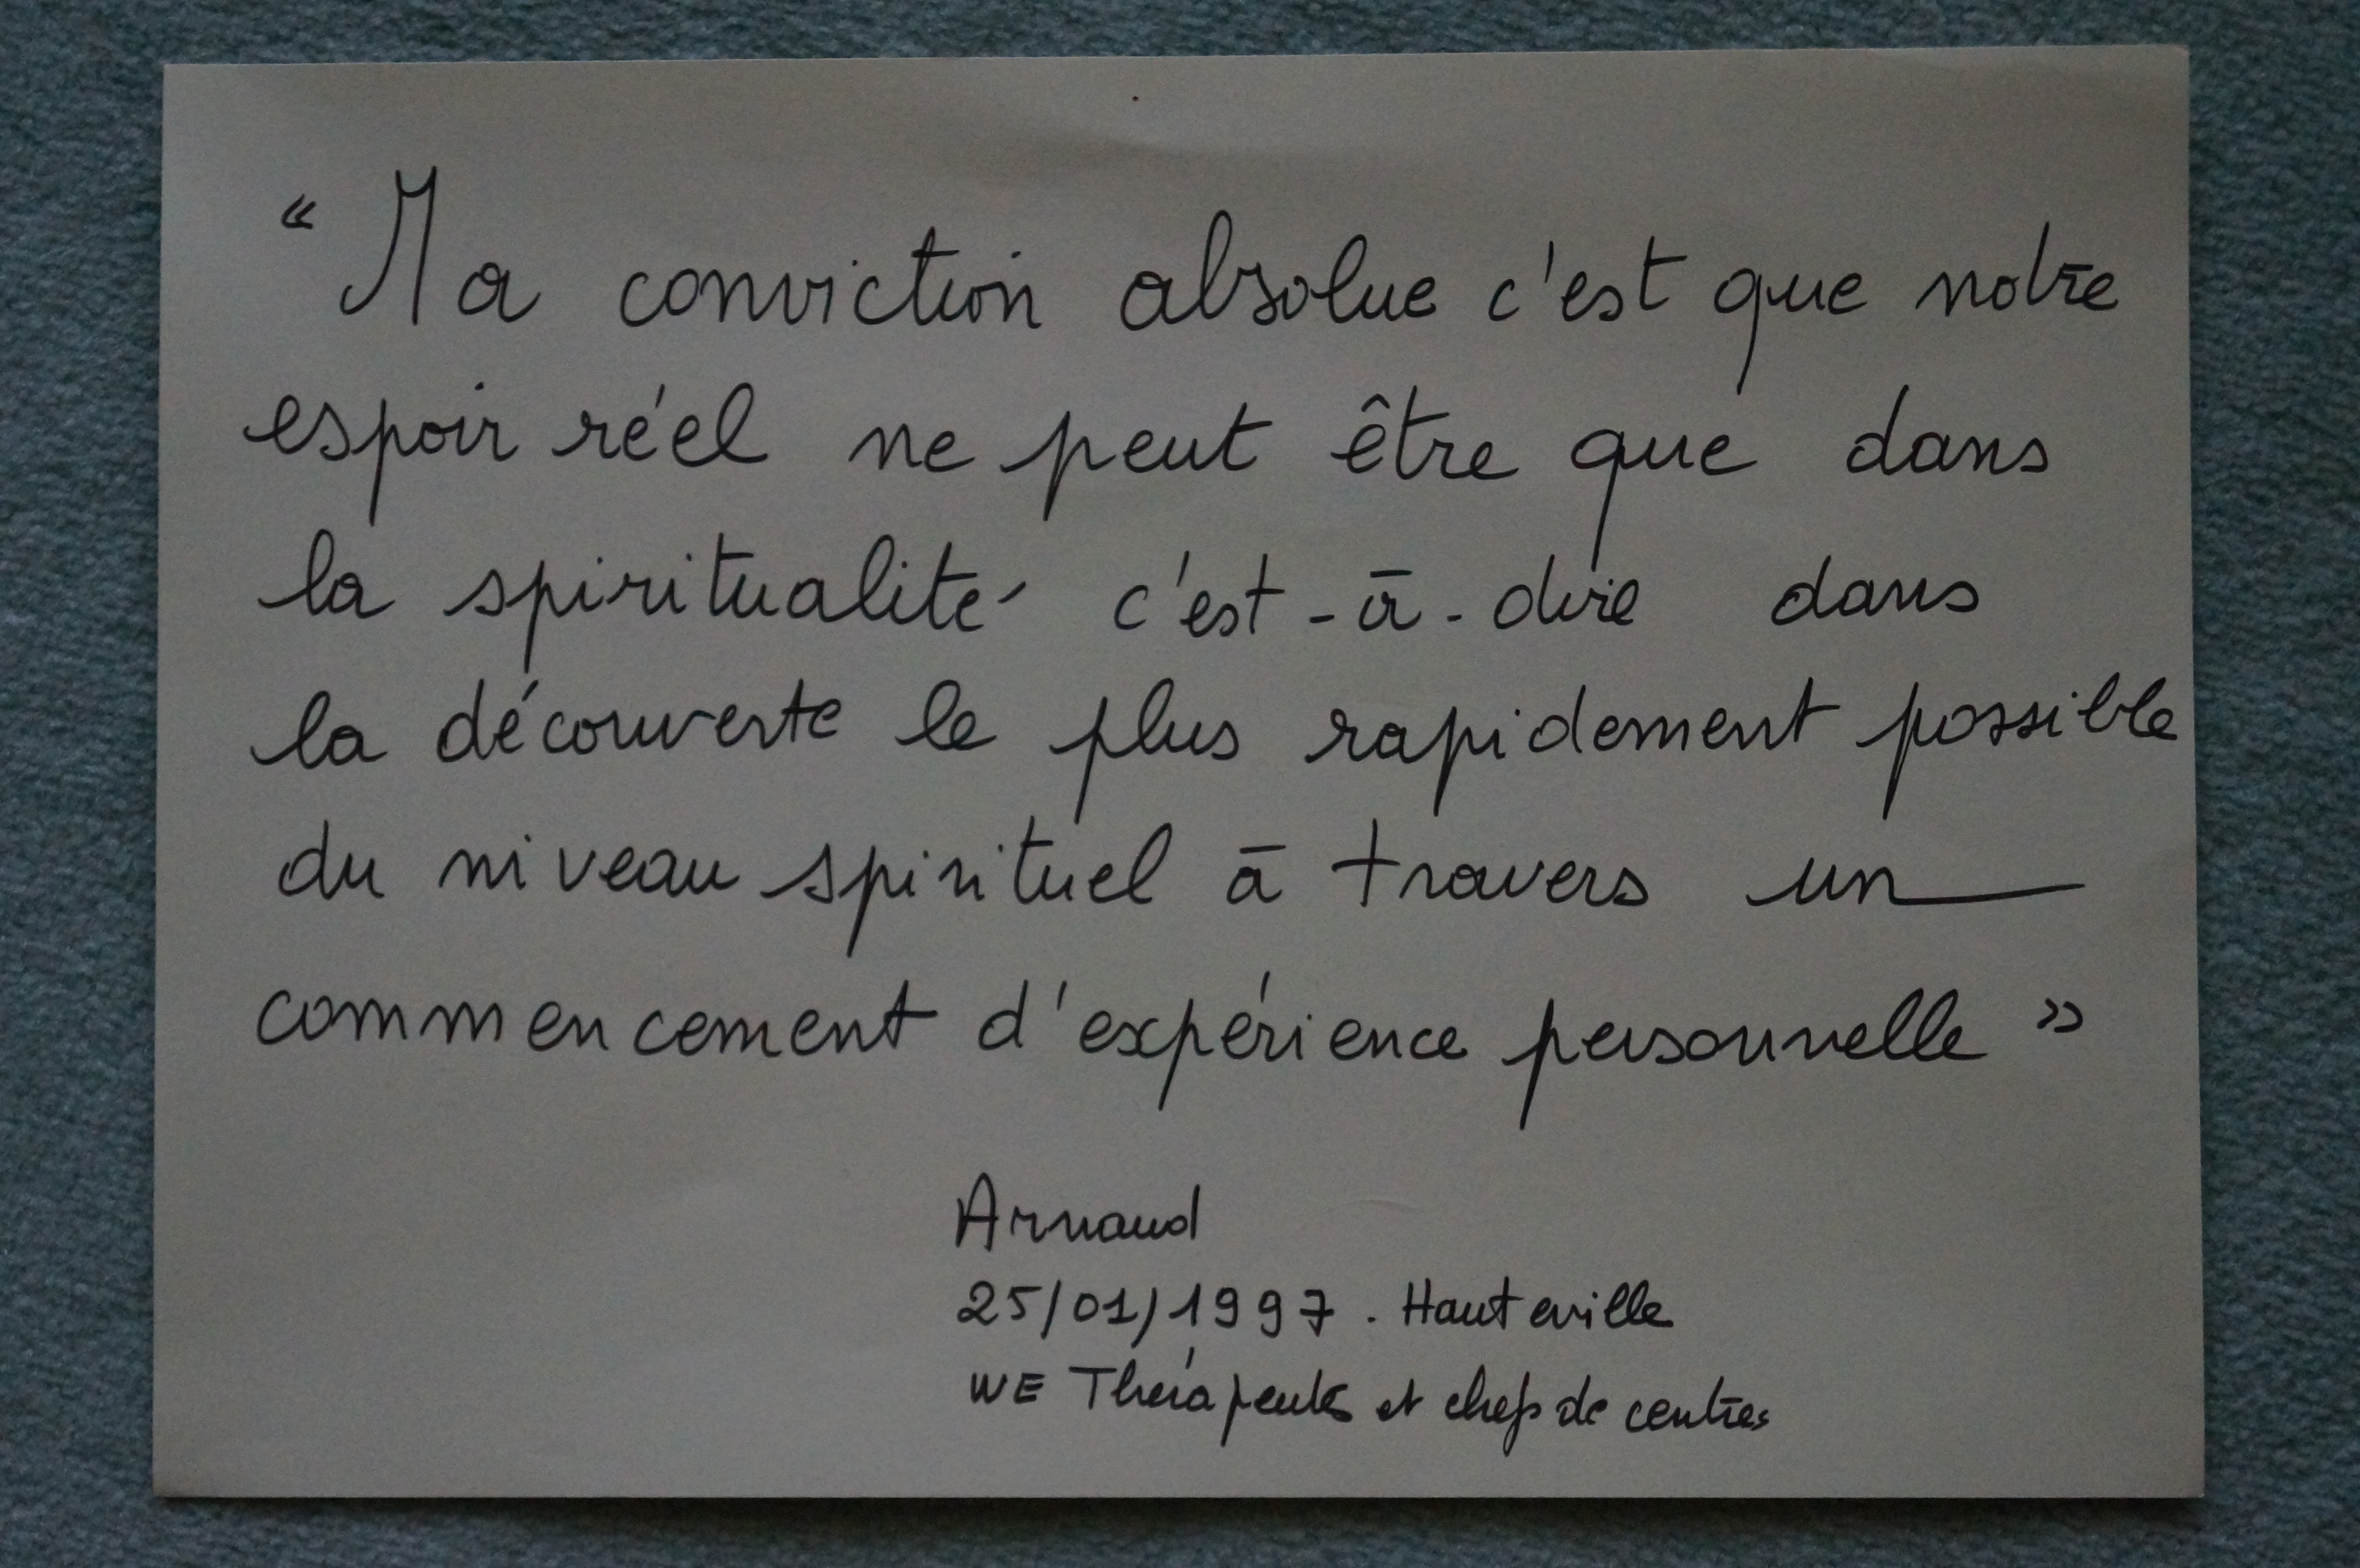 « Ma conviction absolue c'est que notre
espoir réel ne peut être que dans
la spiritualité c'est-à-dire dans
la découverte le plus rapidement possible
du niveau spirituel à travers un
commencement d'expérience personnelle »
Arnaud
25/01/1997. Hauteville
WE Thérapeutes et chefs de centres